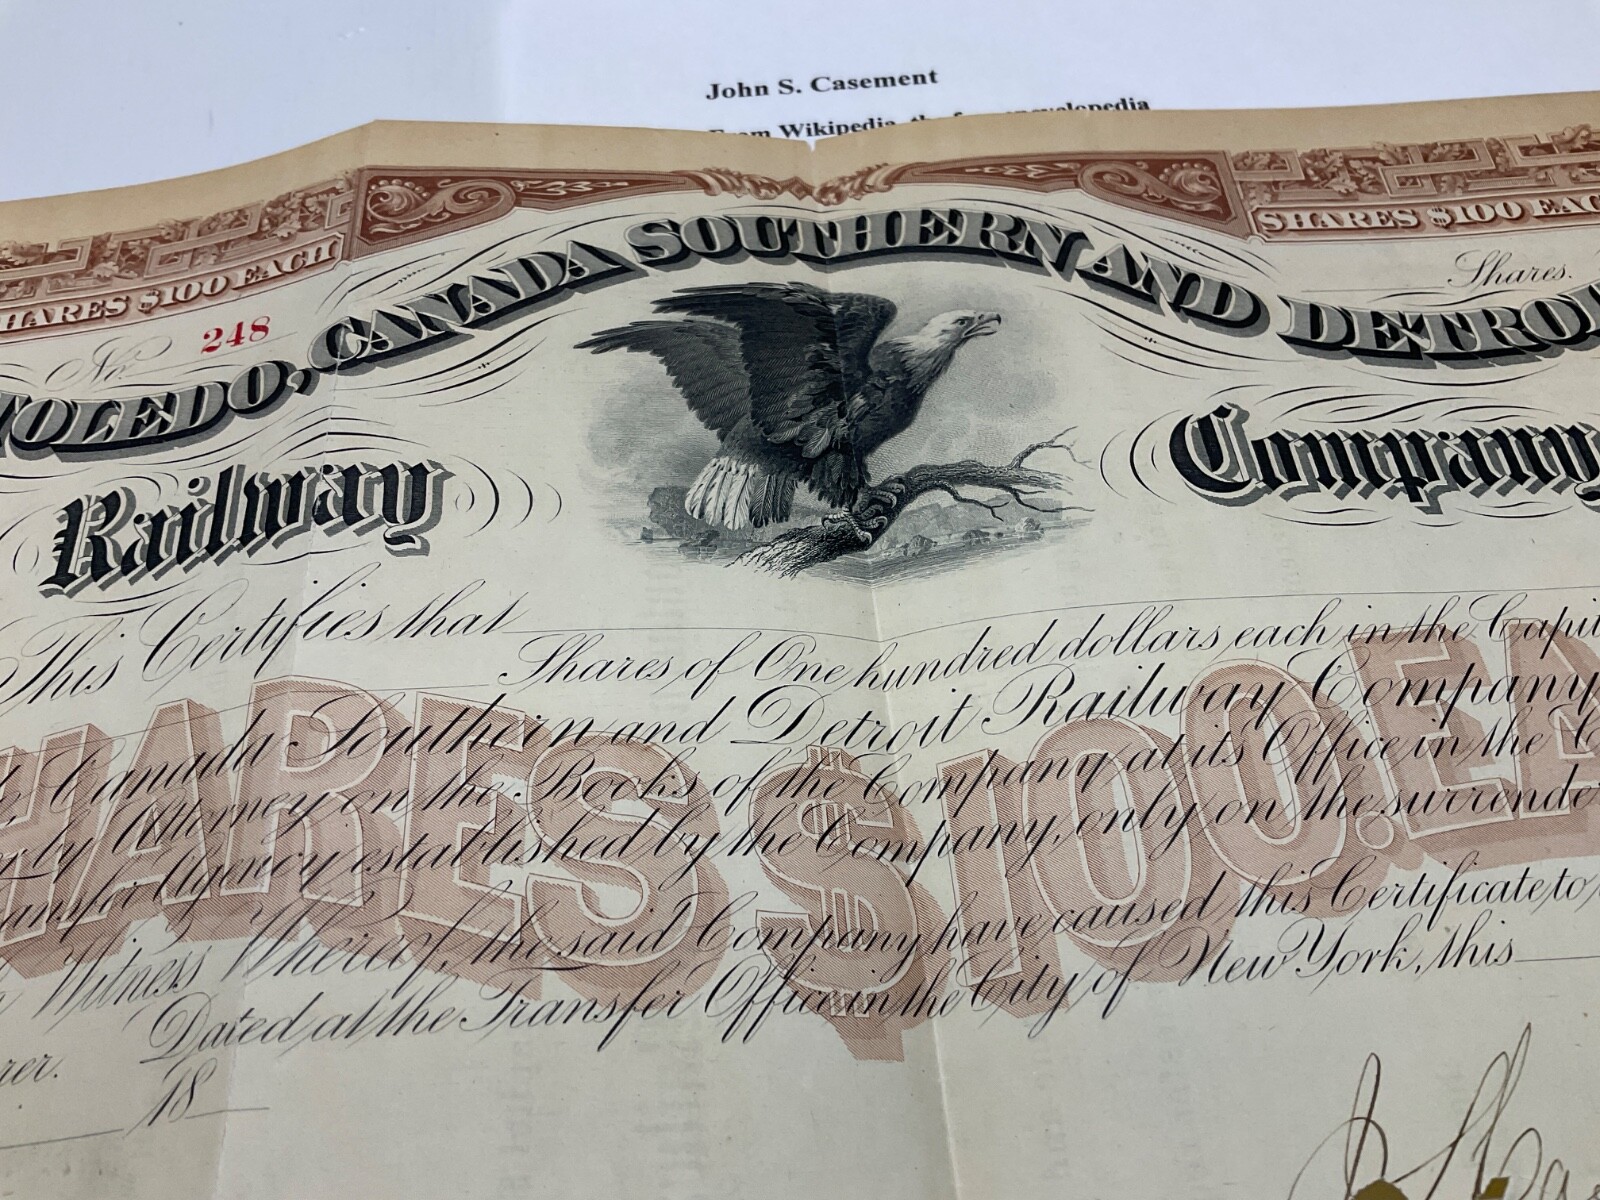 John S. Casement
From Wikipedia, the free encyclopedia
SHARES $100 EACH
SHARES $100 EAC
No. 248
Shares.
TOLEDO, CANADA SOUTHERN AND DETROI
Railway Company
This Certifies that
Shares of One hundred dollars each in the Capi
Canada Southern and Detroit Railway Company
by Attorney on the Books of the Company at its Office in the C
ansfer Agency established by the Company, only on the surrende
Witness Whereof, the said Company have caused this Certificate to
Dated at the Transfer Office in the City of New York, this
rer.
18
HARES $100. EA
J. S. Ca